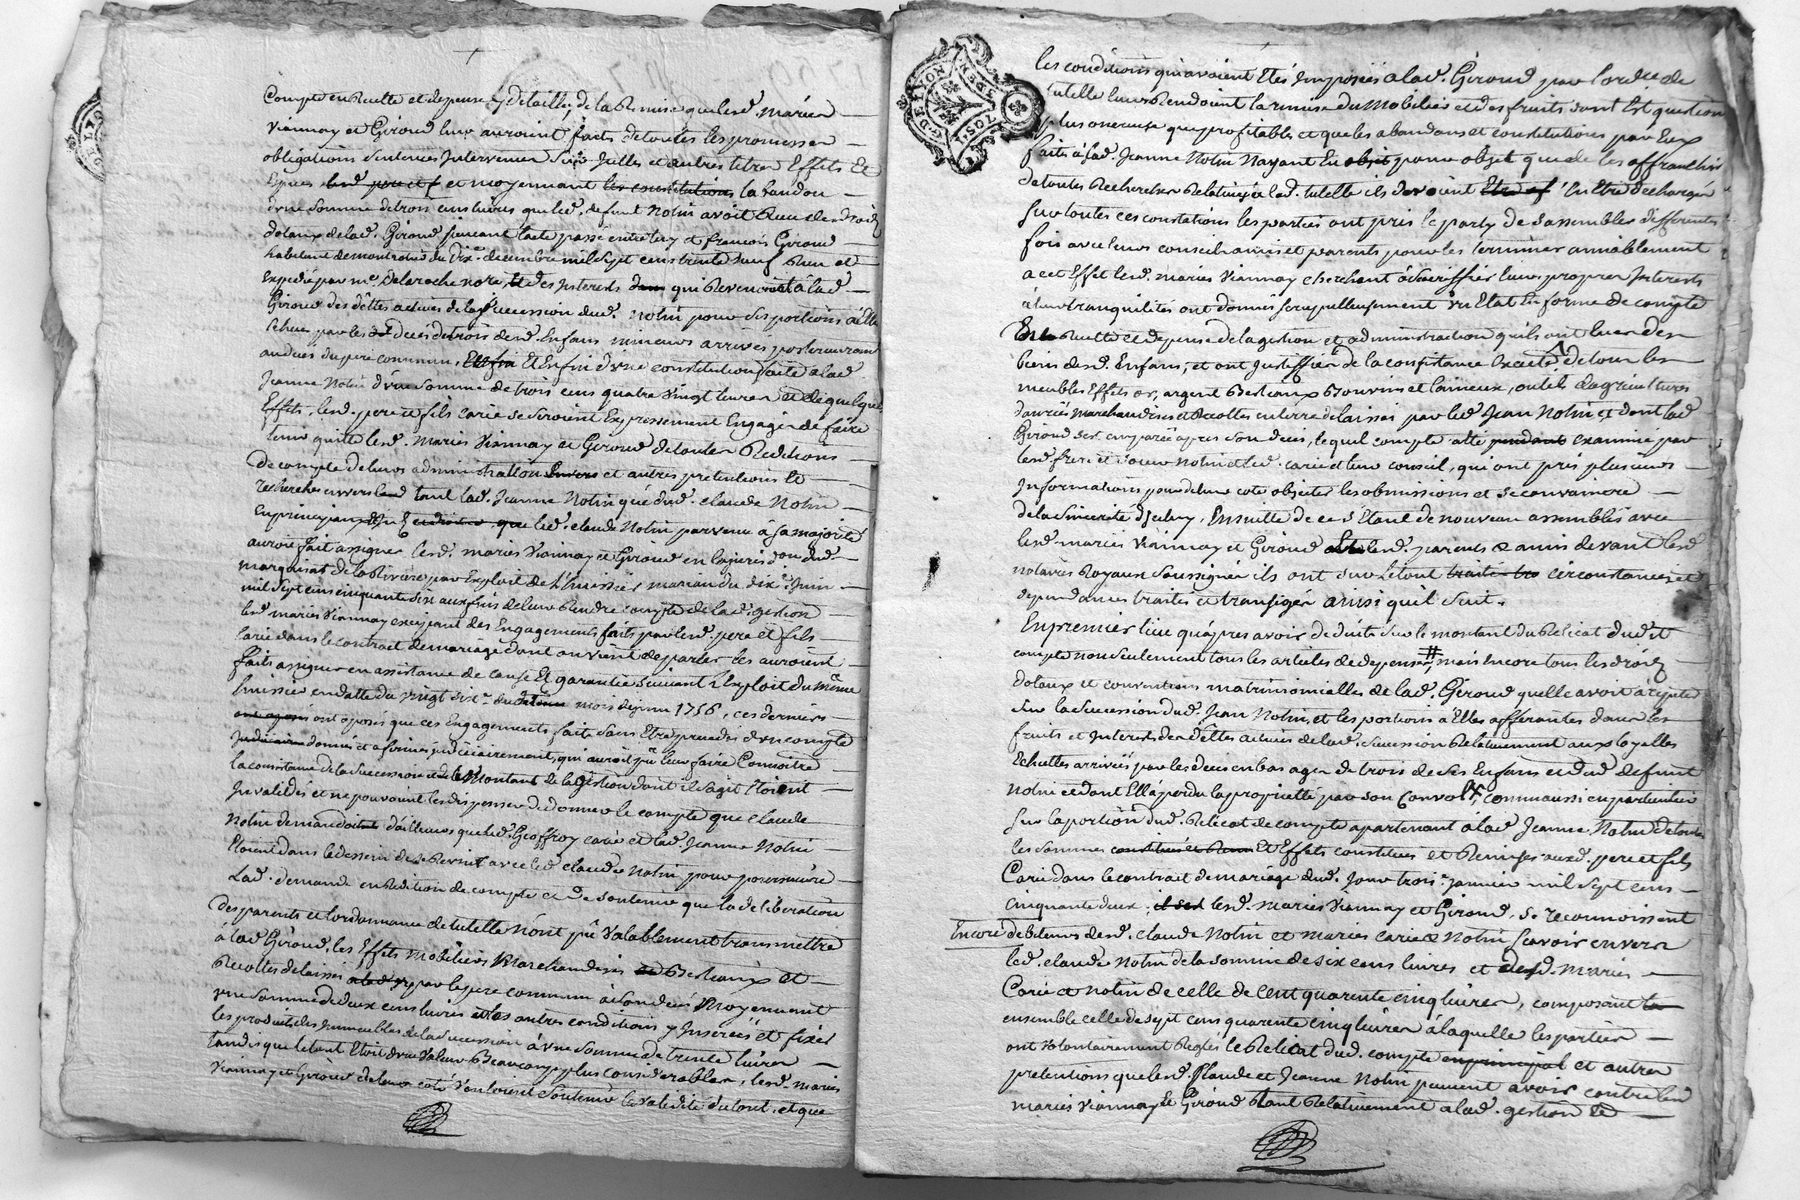 Compte en Recette et depense & detaillé, de la Remise que lesd. mariés
Viannay et Giroud leur auroint faits de toutes les promesses
obligations sentences Intervenues sur Icelles et autres titres Effets et
Especes et moyennant la bandon
d'une somme de trois cens livres que led. defunt Notin avoit Reçue des droits
dotaux de lad. Giroud suivant l'acte passé entre luy et françois Giroud
habitant de montromant du dixe. decembre mil sept cens trente neuf Reçu et
expedié par me. Delaroche notre, et des Interests qui Revenoient à lad.
Giroud des dettes actives de la succession dud. Notin pour les portions à Elle
Echues par les decès de trois desd. Enfans mineurs arrivés posterieurement
audeces du pere commun, Et Enfin d'une constitution faite a lad.
Jeanne Notin d'une somme de trois cens quatre vingt livres et de quelques
Effets, lesd. pere et fils carie se seroient Expressement Engagés de faire
tenir quitte lesd. mariés Viannay et Giroud de toutes Redditions
de compte de leurs administration et autres pretentions et
recherches envers tant lad. Jeanne Notin que dud. claude Notin
que led. claude Notin parvenu à sa majorité
auroit fait assigner lesd. mariés Viannay et Giroud en la jurisd.on dud.
marquisat de la Riviere par Exploit de L'huissier marian du dix Juin
mil sept cens cinquante six aux fins de leur Rendre compte de lad. gestion
lesd. mariés Viannay excipant des Engagements faits par lesd. pere et fils
carie dans le contrat de mariage dont on vient de parler les auroient
faits assigner en assistance de cause Et garantie suivant l'Exploit du même
huissier en datte du vingt six du mois de juin 1756, ces derniers
ont oposés que ces Engagements faits sans Etre precedés d'un compte
donné et afirmé judiciairement, qui auroit pû leur faire Connoitre
la consistance de la succession et le Montant de la gestion dont il s'agit Etoient
Invalides et ne pouvoient les dispenser de donner le compte que claude
Notin demandoit d'ailleurs que led. Geoffroy carie et lad. Jeanne Notin
Etoient dans le dessein de se Reünir avec led. claude Notin pour poursuivre
Lad. demande en Reddition de compte et de soutenir que la deliberation
des parents et l'ordonnance de tutelle n'ont pû valablement transmettre
à lad. Giroud, les Effets mobiliers Marchandises Bestiaux et
Recoltes delaissés par le pere commun à son decès Moyennant
une somme de deux cens livres et les autres conditions y Inserées et fixer
les produits des Immeubles de la succession à une somme de trente livres
tandis que le tout Etoit d'une valeur Beaucoup plus considerable, lesd. mariés
Viannay et Giroud de leur coté vouloient soutenir la validité du tout, et que
G. DE LYON
les conditions qui avoient Etés Imposées a lad. Giroud par l'ordce. de
tutelle leurs Rendoient la remise du Mobilier et des fruits dont Est question
plus onereuse que profitable et que les abandons et constitutions par Eux
faits à lad. Jeanne Notin N'ayant Eu pour objet que de les affranchir
de toutes Recherches Relatives à lad. tutelle ils devoient En Etre dechargés
sur toutes ces constations les parties ont pris le party de s'assembler differentes
fois avec leurs conseils amis et parents pour les terminer amiablement
a cet Effet lesd. mariés Viannay cherchant à sacriffier leurs propres Interests
à leur tranquilités ont donnés scrupuleusement un Etat En forme de compte
En Recette et depense de la gestion et administration qu'ils ont Eues des
biens desd. Enfans, et ont Justiffiés de la consistance de tous les
meubles Effets or, argent Bestiaux Bouvins et laineux, outils d'agricultures
danrées Marchandises et Recoltes en terre delaissés par led. Jean Notin et dont lad.
Giroud s'est emparée apres son deces, lequel compte a Eté examiné par
lesd. frere et soeur Notin et led. carie et leur conseil, qui ont pris plusieurs
Informations pour de leur coté objecter les obmissions et se convaincre
de la sincerité d'Iceluy, Ensuitte de ce s'Etant de nouveau assemblés avec
lesd. mariés Viannay et Giroud lesd. parents & amis devant lesd.
notaires Royaux soussignés ils ont sur Le tout circonstances et
dependances traités et transigés ainsi qu'il suit.
En premier lieu qu'apres avoir deduits sur le montant du Relicat dudit
compte non seulement tous les articles de depense # mais Encore tous les droits
dotaux et conventions matrimonialles de lad. Giroud quelle avoit à repeter
sur la succession dud. Jean Notin, et les portions a Elles afferantes dans les
fruits et Interest des dettes actives de lad. succession Relativement aux loyalles
Echuttes arrivées par les deces en bas age de trois de ses Enfans et dud. defunt
Notin et dont Elle a perdu la proprieté par son Convol, comme aussi en particulier
sur la portion dud. Relicat de compte apartenant à lad. Jeanne Notin de toutes
les sommes Et Effets constitués et Remises auxd. pere et fils
Carie dans le contrat de mariage dud. jour trois janvier mil sept cens
cinquante deux, lesd. mariés Viannay et Giroud, se reconnoissent
Encore debiteurs desd. claude Notin et mariés carie & Notin sçavoir envers
led. claude Notin de la somme de six cens livres et desd. mariés
Carie et Notin de celle de cent quarente cinq livres, composant
ensemble celle de sept cens quarente cinq livres à laquelle les parties
ont volontairement Reglés le Relicat dud. compte et autres
pretentions que lesd. Claude et Jeanne Notin peuvent avoir contre lesd.
mariés Viannay & Giroud tant Relativement a lad. gestion et